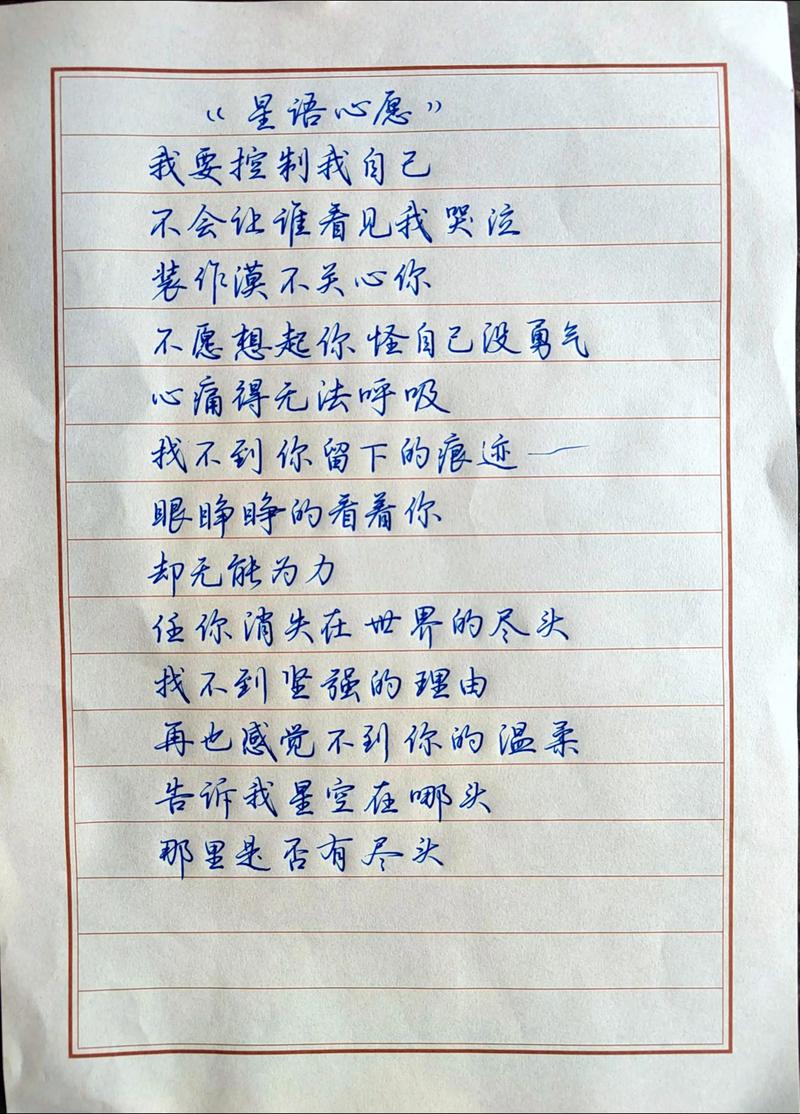 《星语心愿》
我要控制我自己
不会让谁看见我哭泣
装作漠不关心你
不愿想起你怪自己没勇气
心痛得无法呼吸
找不到你留下的痕迹——
眼睁睁的看着你
却无能为力
任你消失在世界的尽头
找不到坚强的理由
再也感觉不到你的温柔
告诉我星空在哪头
那里是否有尽头